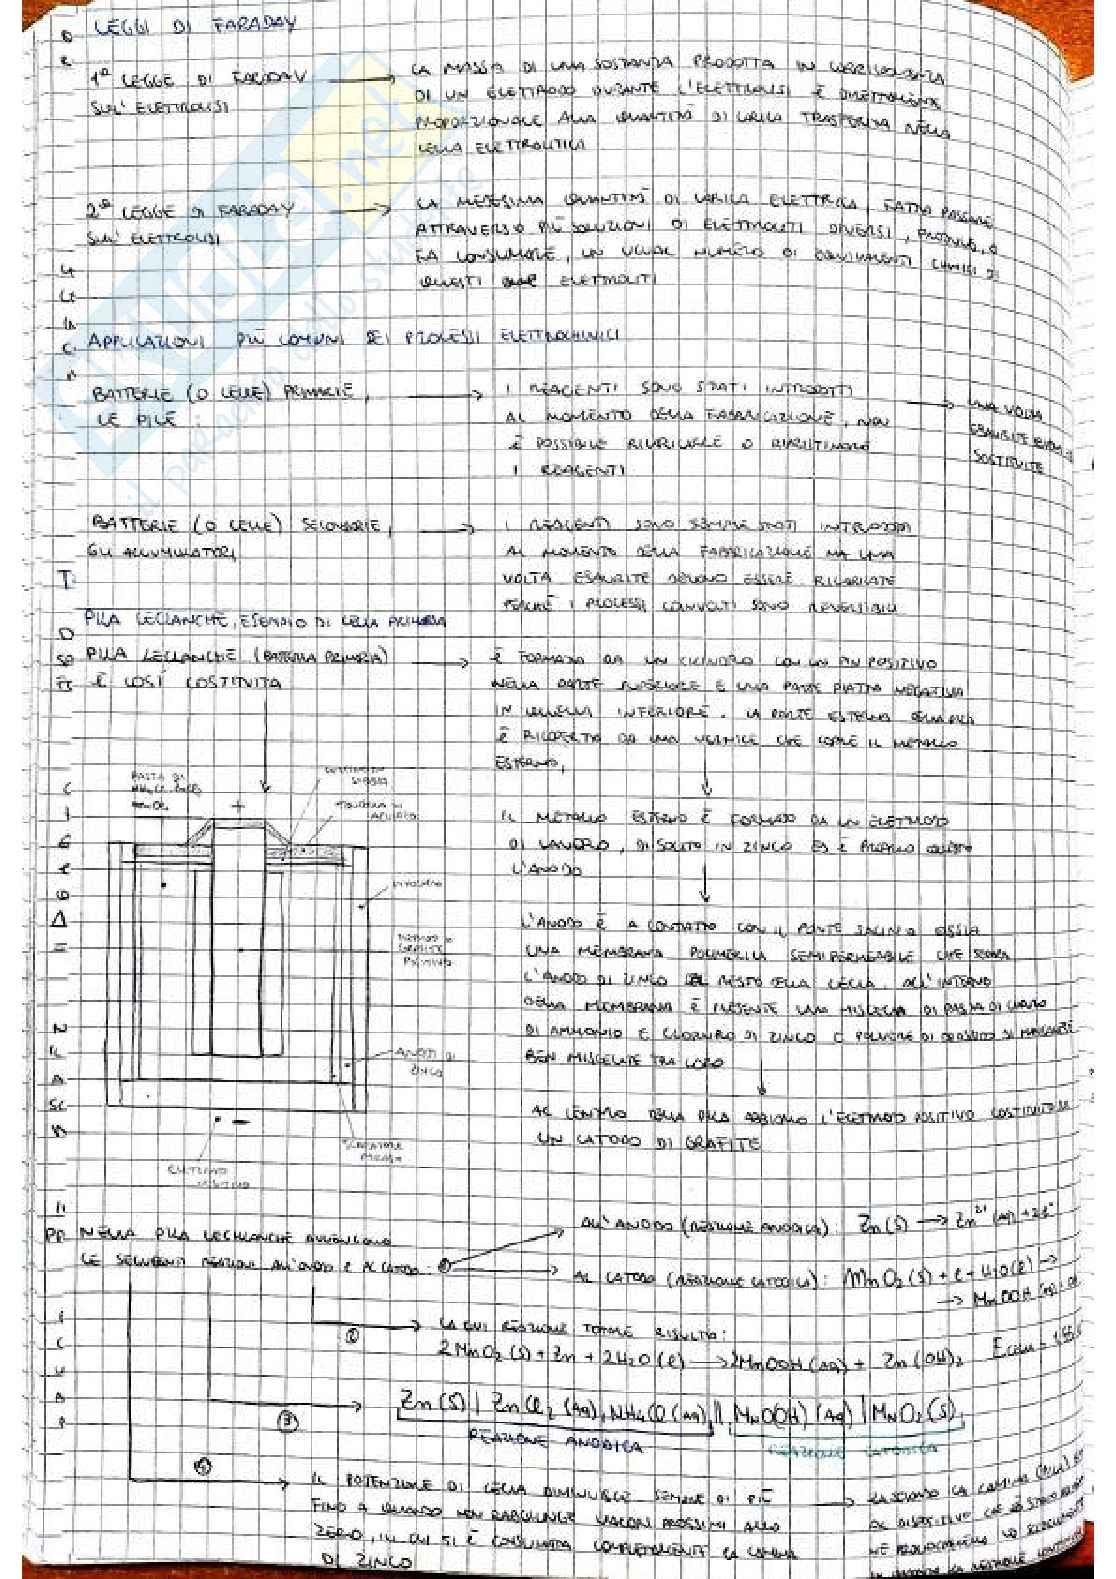 LEGGI DI FARADAY
1ª LEGGE DI FARADAY
SULL' ELETTROLISI
LA MASSA DI UNA SOSTANZA PRODOTTA IN CORRISPONDENZA
DI UN ELETTRODO DURANTE L'ELETTROLISI È DIRETTAMENTE
PROPORZIONALE ALLA QUANTITÀ DI CARICA TRASFERITA NELLA
CELLA ELETTROLITICA
2ª LEGGE DI FARADAY
SULL' ELETTROLISI
LA MEDESIMA QUANTITÀ DI CARICA ELETTRICA, FATTA PASSARE
ATTRAVERSO PIÙ SOLUZIONI DI ELETTROLITI DIVERSI, PRODUCE, O
FA CONSUMARE, UN UGUAL NUMERO DI EQUIVALENTI CHIMICI DI
QUESTI ELETTROLITI
APPLICAZIONI PIÙ COMUNI DEI PROCESSI ELETTROCHIMICI
BATTERIE (O CELLE) PRIMARIE,
LE PILE:
I REAGENTI SONO STATI INTRODOTTI
AL MOMENTO DELLA FABBRICAZIONE, NON
È POSSIBILE RICARICARLE O RIPRISTINARE
I REAGENTI
UNA VOLTA
ESAURITE
SOSTITUITE
BATTERIE (O CELLE) SECONDARIE,
GLI ACCUMULATORI
I REAGENTI SONO SEMPRE STATI INTRODOTTI
AL MOMENTO DELLA FABBRICAZIONE MA UNA
VOLTA ESAURITE DEVONO ESSERE RICARICATE
PERCHÈ I PROCESSI COINVOLTI SONO REVERSIBILI
PILA LECLANCHÈ, ESEMPIO DI CELLA PRIMARIA
PILA LECLANCHÈ (BATTERIA PRIMARIA)
È COSÌ COSTITUITA
È FORMATA DA UN CILINDRO CON UN PIN POSITIVO
NELLA PARTE SUPERIORE E UNA PARTE PIATTA NEGATIVA
IN QUELLA INFERIORE. LA PARTE ESTERNA DELLA PILA
È RICOPERTA DA UNA VERNICE CHE COPRE IL METALLO
ESTERNO,
PASTA DI
+
IL METALLO ESTERNO È FORMATO DA UN ELETTRODO
DI LAVORO, DI SOLITO IN ZINCO ED È PROPRIO QUESTO
L'ANODO
INVOLUCRO
GRAFITE
POSITIVO
L'ANODO È A CONTATTO CON IL PONTE SALINO OSSIA
UNA MEMBRANA POLIMERICA SEMIPERMEABILE CHE SEPARA
L'ANODO DI ZINCO DAL RESTO DELLA CELLA. ALL'INTERNO
DELLA MEMBRANA È PRESENTE UNA MISCELA DI PASTA DI CLORURO
DI AMMONIO E CLORURO DI ZINCO E POLVERE DI BIOSSIDO DI MANGANESE
BEN MISCELATE TRA LORO
ANODO DI
ZINCO
AL CENTRO DELLA PILA ABBIAMO L'ELETTRODO POSITIVO COSTITUITO DA
UN CATODO DI GRAFITE
-
SEPARATORE
NELLA PILA LECHLANCHÈ AVVENGONO
LE SEGUENTI REAZIONI ALL'ANODO E AL CATODO:
ALL'ANODO (REAZIONE ANODICA): Zn(s) → Zn²⁺ (aq) + 2e⁻
AL CATODO (REAZIONE CATODICA): MnO₂ (s) + e + H₂O (l) →
→ MnOOH (aq) + OH
② LA CUI REAZIONE TOTALE RISULTA:
2MnO₂ (s) + Zn + 2H₂O (l) → 2MnOOH (aq) + Zn(OH)₂
③ Zn (s) | ZnCl₂ (aq), NH₄Cl (aq) || MnOOH (aq) | MnO₂ (s)
REAZIONE ANODICA
REAZIONE CATODICA
IL POTENZIALE DI CELLA DIMINUISCE SEMPRE DI PIÙ
FINO A QUANDO NON RAGGIUNGE VALORI PROSSIMI ALLO
ZERO, IN CUI SI È CONSUMATA COMPLETAMENTE LA LAMINA
DI ZINCO